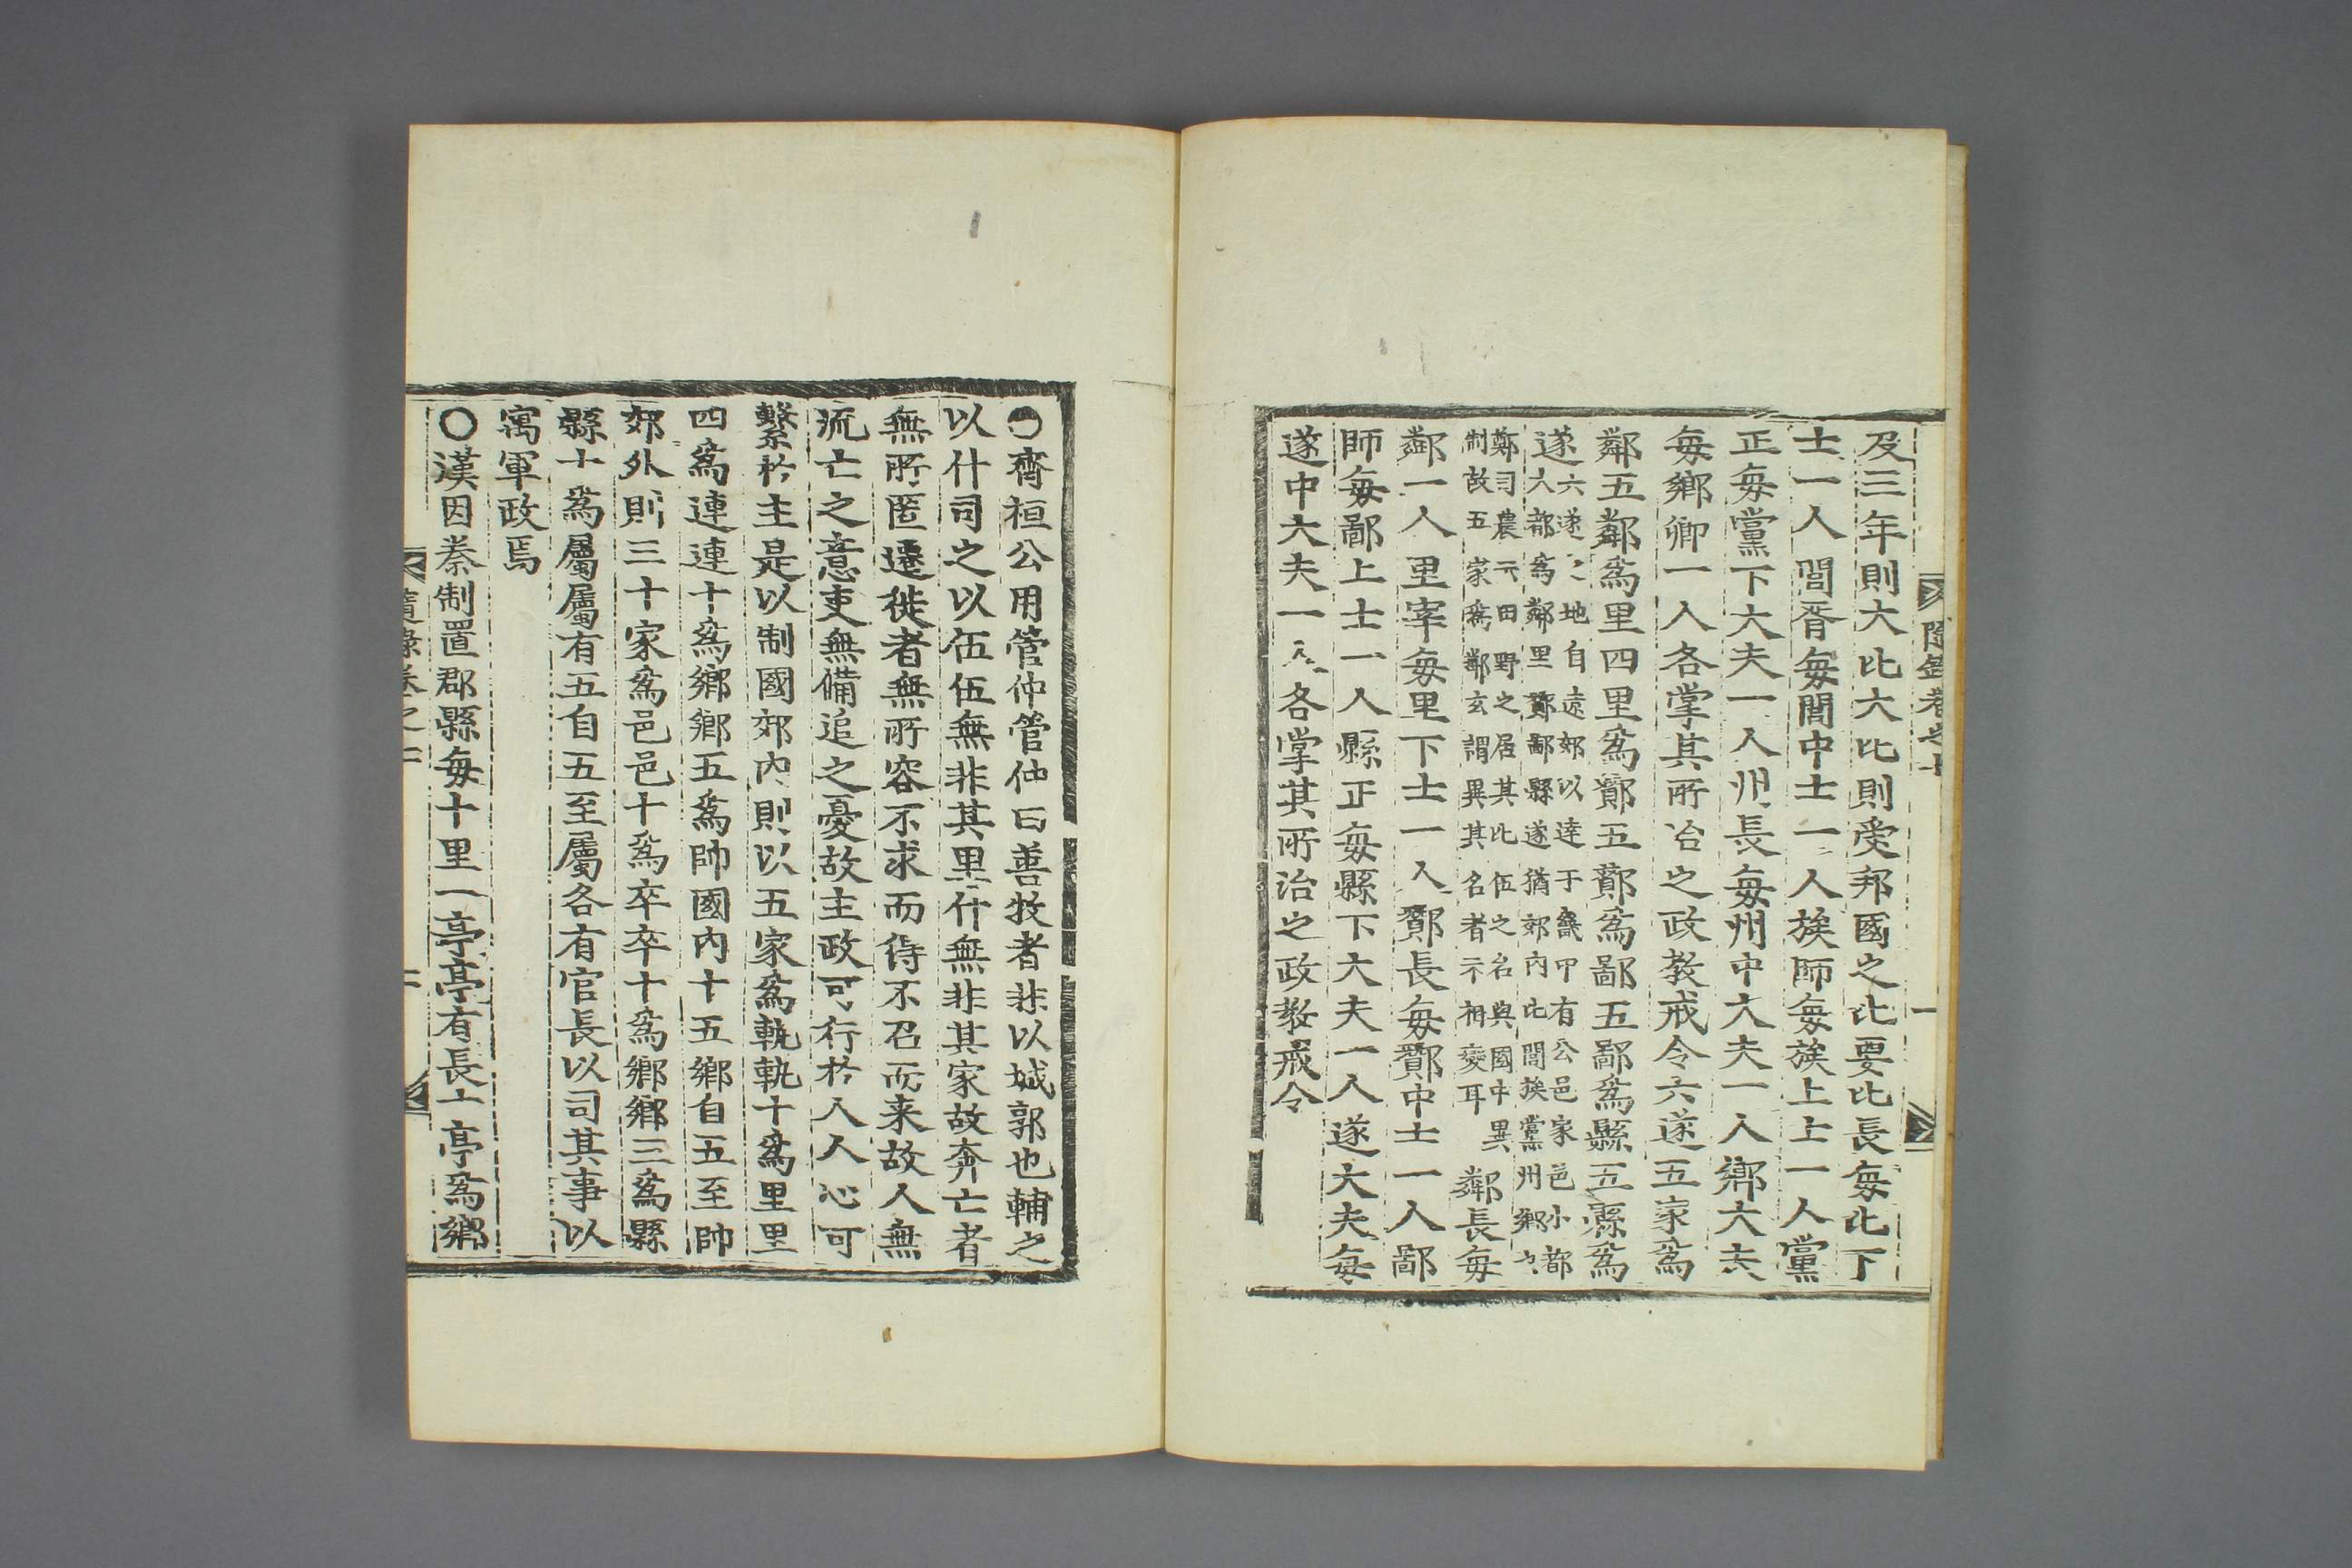 及三年則大比大比則受邦國之比要比長每比下
士一人閭胥每閭中士一人族師每族上士一人黨
正每黨下大夫一人州長每州中大夫一人鄕大夫
每鄕卿一人各掌其所治之政敎戒令六遂五家爲
鄰五鄰爲里四里爲酇五酇爲鄙五鄙爲縣五縣爲
遂六遂之地自遠郊以達于畿甲有公邑家邑小都
大都焉鄰里酇鄙縣遂猶郊內比閭族黨州鄕也
鄭司農云田野之居其比伍之名與國中異
制故五家爲鄰玄謂異其名者示相變耳
鄰長每
鄰一人里宰每里下士一人酇長每酇中士一人鄙
師每鄙上士一人縣正每縣下大夫一人遂大夫每
遂中大夫一人各掌其所治之政敎戒令
○齊桓公用管仲管仲曰善牧者非以城郭也輔之
以什司之以伍伍無非其里什無非其家故奔亡者
無所匿遷徙者無所容不求而得不召而来故人無
流亡之意吏無備追之憂故主政可行於人人心可
繫於主是以制國郊內則以五家爲軌軌十爲里里
四爲連連十爲鄕鄕五爲帥國內十五鄕自五至帥
郊外則三十家爲邑邑十爲卒卒十爲鄕鄕三爲縣
縣十爲屬屬有五自五至屬各有官長以司其事以
寓軍政焉
○漢因秦制置郡縣每十里一亭亭有長十亭爲鄕